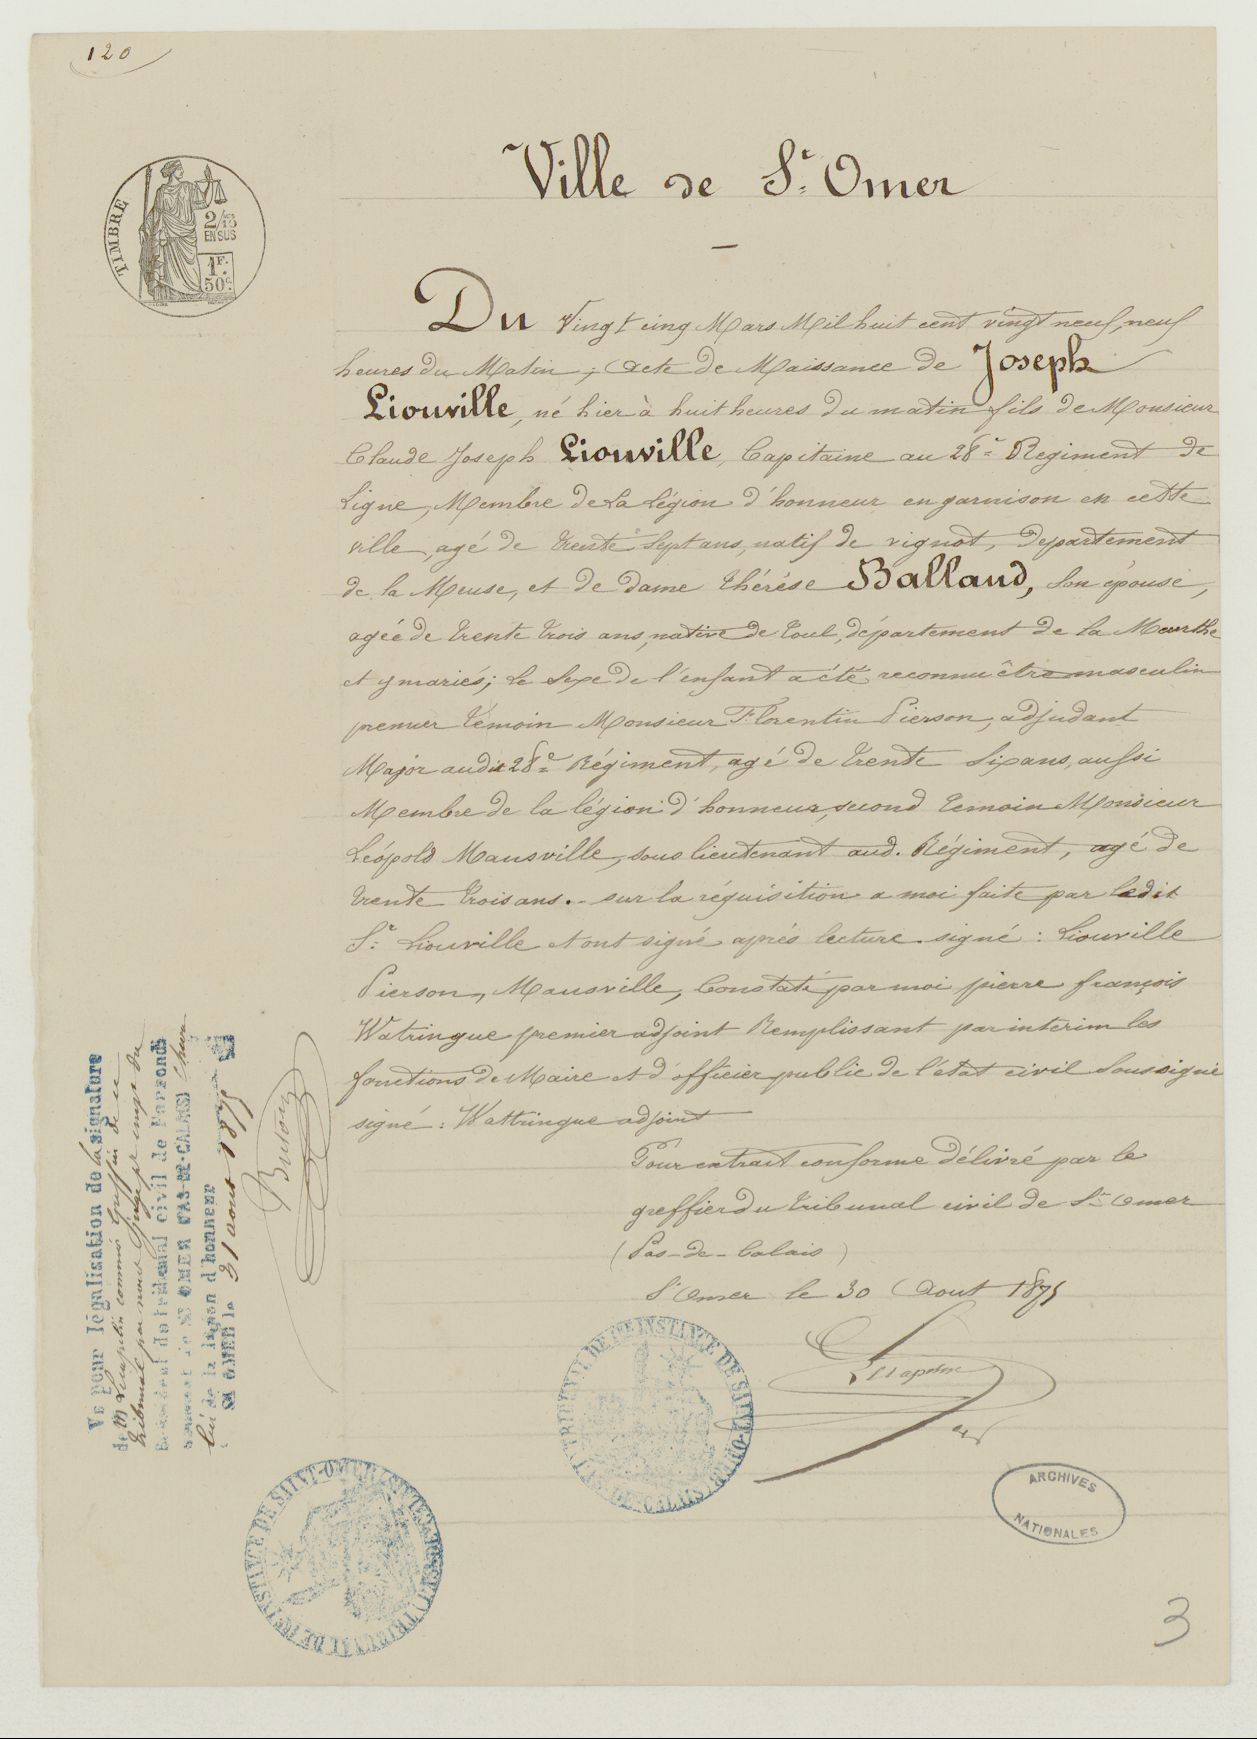 120
TIMBRE
2/10
EN SUS
1F.
50c.
Ville de St. Omer
Du Vingt cinq Mars Mil huit cent vingt neuf, neuf
heures du Matin ; Acte de Naissance de Joseph
Liouville, né hier à huit heures du matin fils de Monsieur
Claude Joseph Liouville, Capitaine au 28e Régiment de
Ligne, Membre de La Légion d'honneur en garnison en cette
ville, agé de trente sept ans, natif de vignot, département
de la Meuse, et de dame thérèse Balland, Son épouse,
agée de trente trois ans, native de toul, département de la Meurthe
et y mariés ; Le Sexe de l'enfant a été reconnu être masculin
premier témoin Monsieur Florentin Pierson, adjudant
Major audit 28e Régiment, agé de trente Six ans, aussi
Membre de la légion d'honneur, second temoin Monsieur
Léopold Mansville, sous lieutenant aud. Régiment, agé de
trente trois ans. sur la réquisition a moi faite par ledit
Sr. Liouville et ont signé après lecture. signé : Liouville
Pierson, Mansville, Constaté par moi pierre françois
Watringue premier adjoint Remplissant par interim les
fonctions de Maire et d'officier public de l'état civil Soussigné
signé : Wattringue adjoint
Pour extrait conforme délivré par le
greffier du tribunal civil de St. Omer
(Pas-de-Calais)
St Omer le 30 Aout 1875
TRIBUNAL DE 1RE INSTANCE DE SAINT-OMER (PAS-DE-CALAIS)
Vu pour légalisation de la signature
de M commis Greffier de ce
tribunal par nous Juge
du tribunal civil de l'arrond
de St OMER (PAS-DE-CALAIS) Chevr
de la légion d'honneur
St OMER le 31 aout 1875
Buton
TRIBUNAL DE 1RE INSTANCE DE SAINT-OMER (PAS-DE-CALAIS)
ARCHIVES
NATIONALES
3